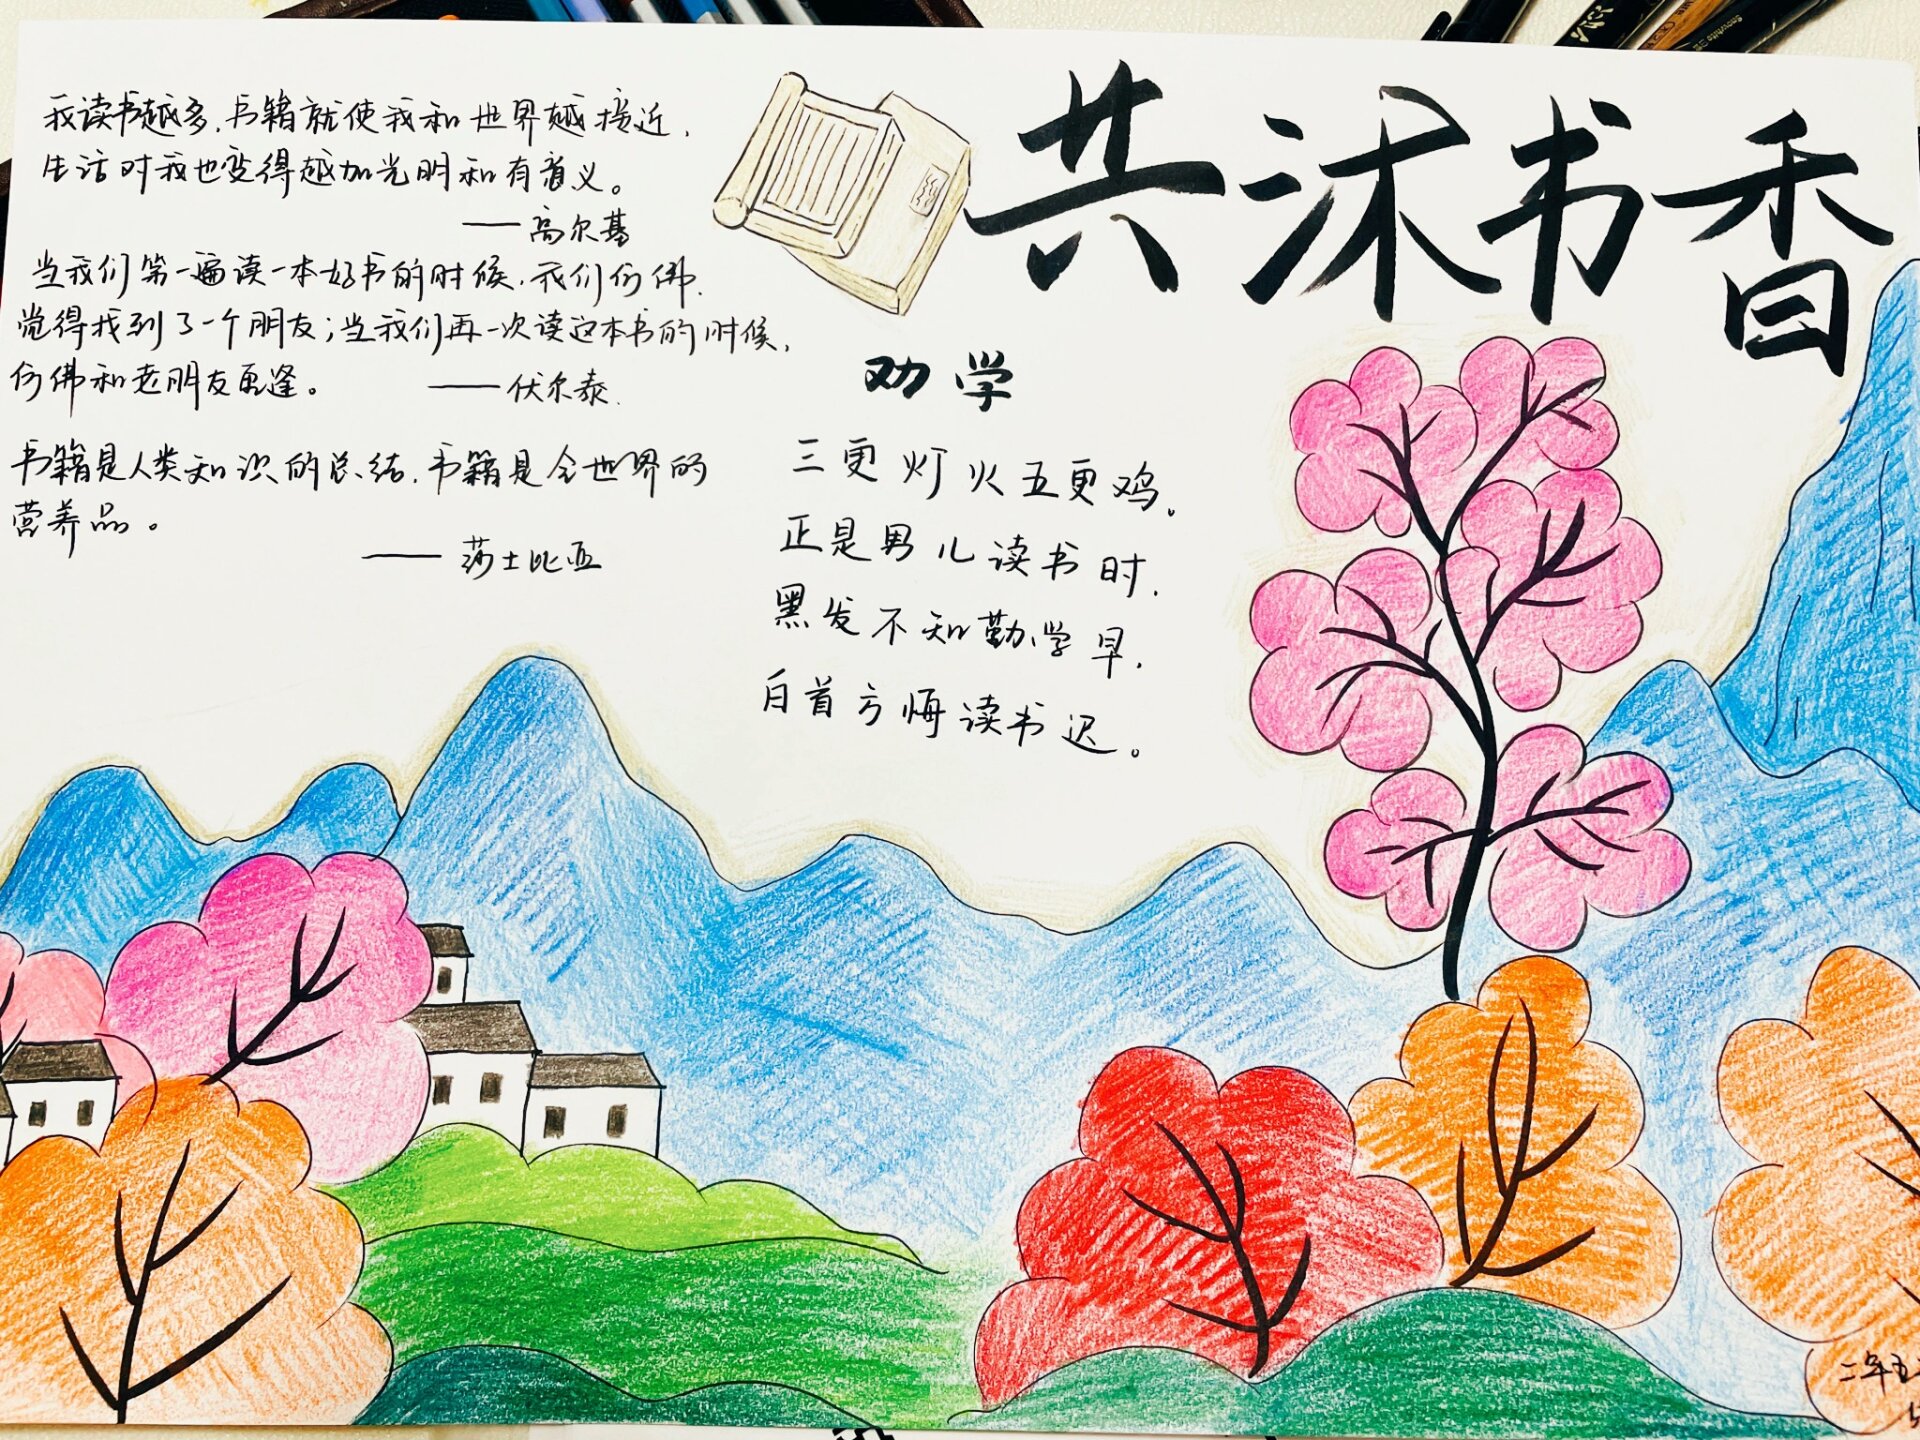 共沐书香
我读书越多，书籍就使我和世界越接近，
生活对我也变得越加光明和有意义。
——高尔基
当我们第一遍读一本好书的时候，我们仿佛
觉得找到了一个朋友；当我们再一次读这本书的时候，
仿佛和老朋友重逢。 ——伏尔泰
书籍是人类知识的总结，书籍是全世界的
营养品。
——莎士比亚
劝学
三更灯火五更鸡。
正是男儿读书时，
黑发不知勤学早，
白首方悔读书迟。
二年五